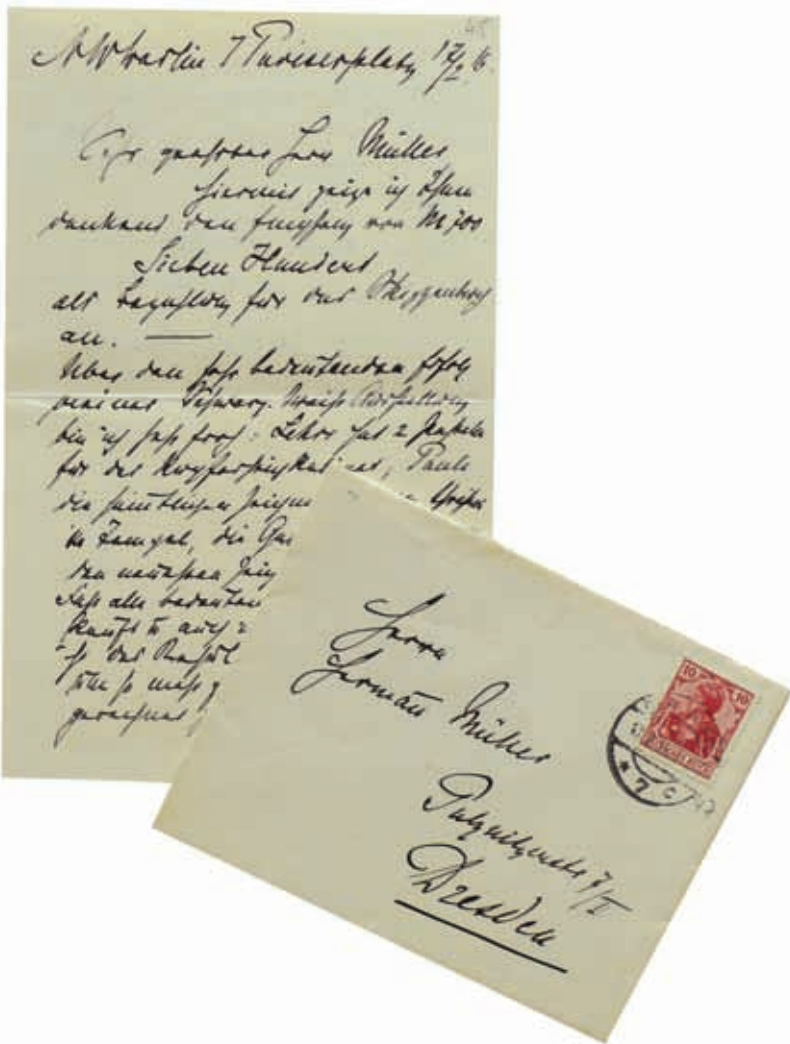 NW Berlin 7 Pariserplatz 17/2. 16.
geehrter Herr Müller
hiermit zeige ich Ihnen
dankend den Empfang von M 700
Sieben Hundert
als Bezahlung für das Skizzenbuch
an. —
Über den sehr bedeutenden Erfolg
meiner Schwarz-Weiss Ausstellung
bin ich sehr froh: Lehrs hat 2 Pastelle
für das Kupferstichkabinet, Pauli
die sämtlichen Zeichn
im Tempel, die
den neuesten Zeich
Fast alle bedeuten
u auch
ist das Result
um so mehr
gerechnet
Herrn
Hermann Müller
Pulsnitzerstr 7/I
Dresden
10 10
* 7 c